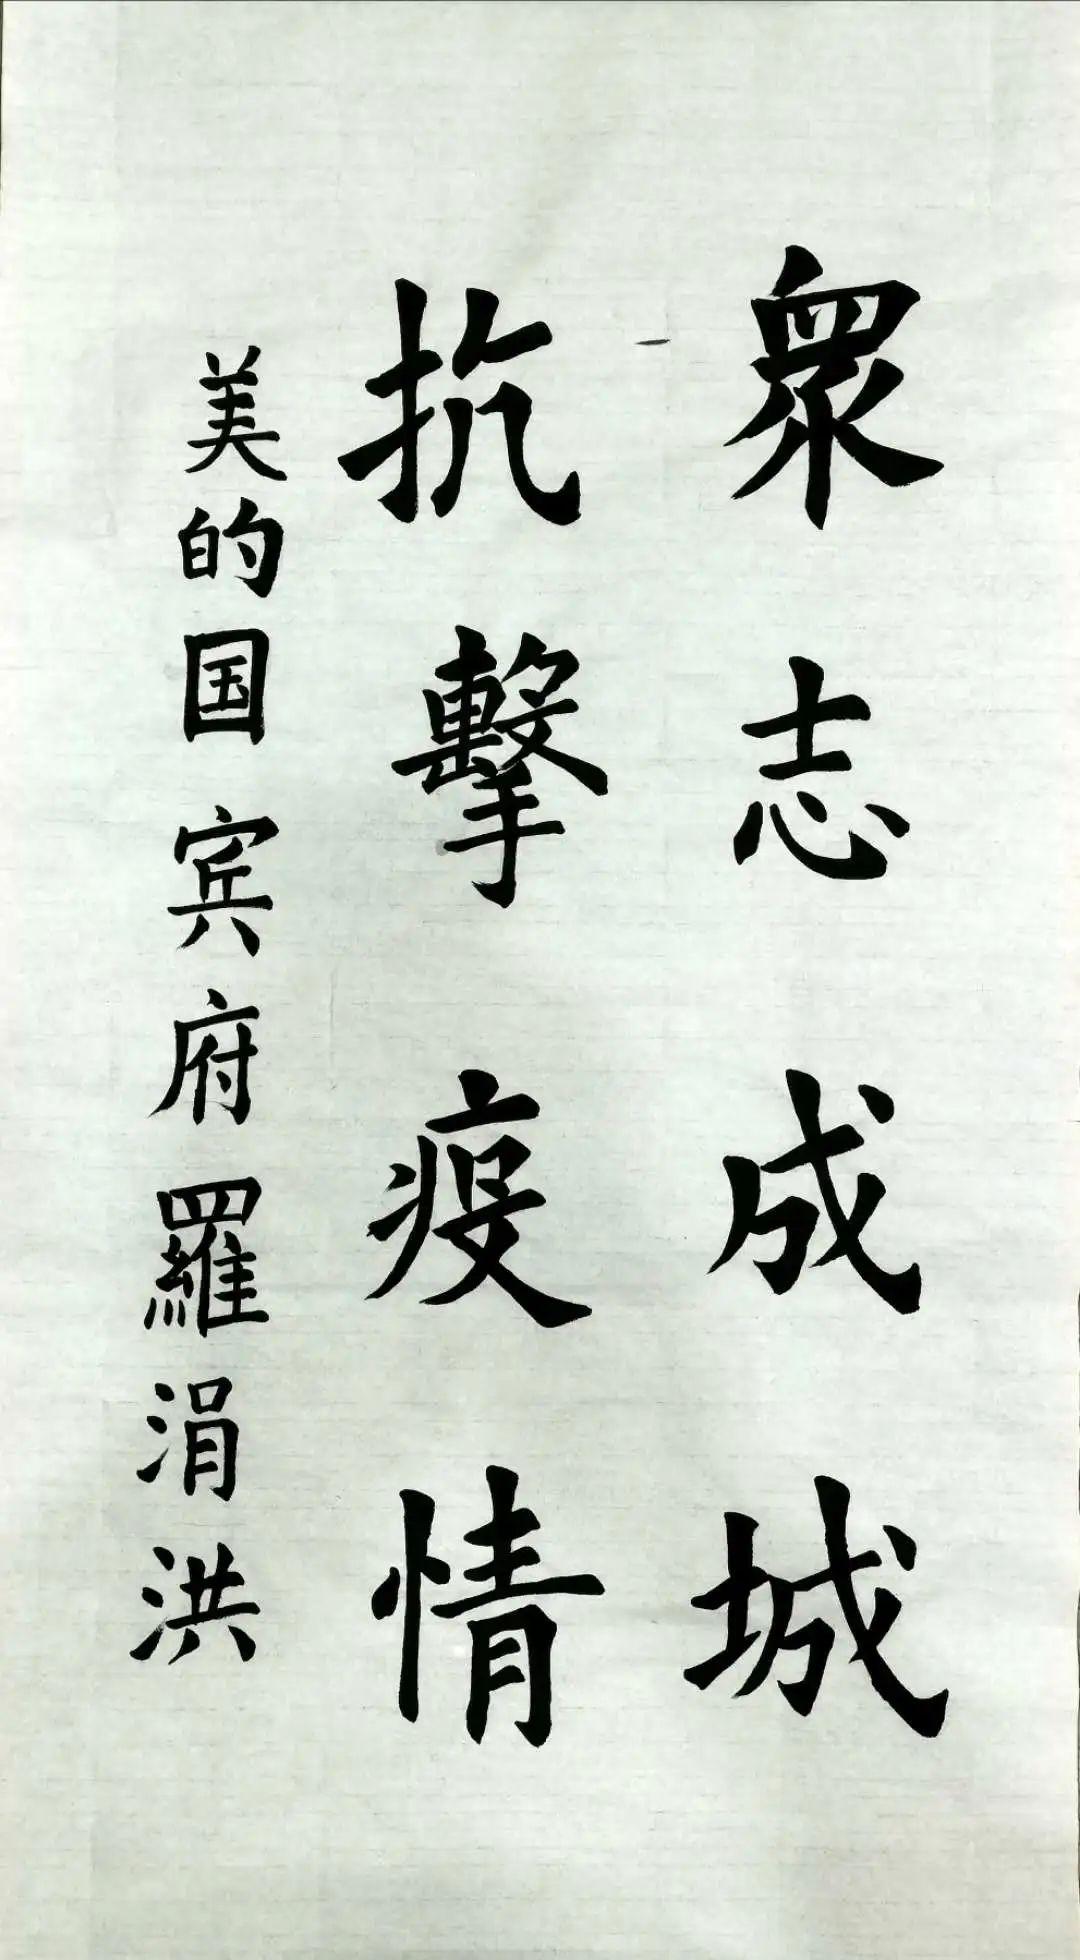 眾志成城
抗擊疫情
美的国宾府羅涓洪